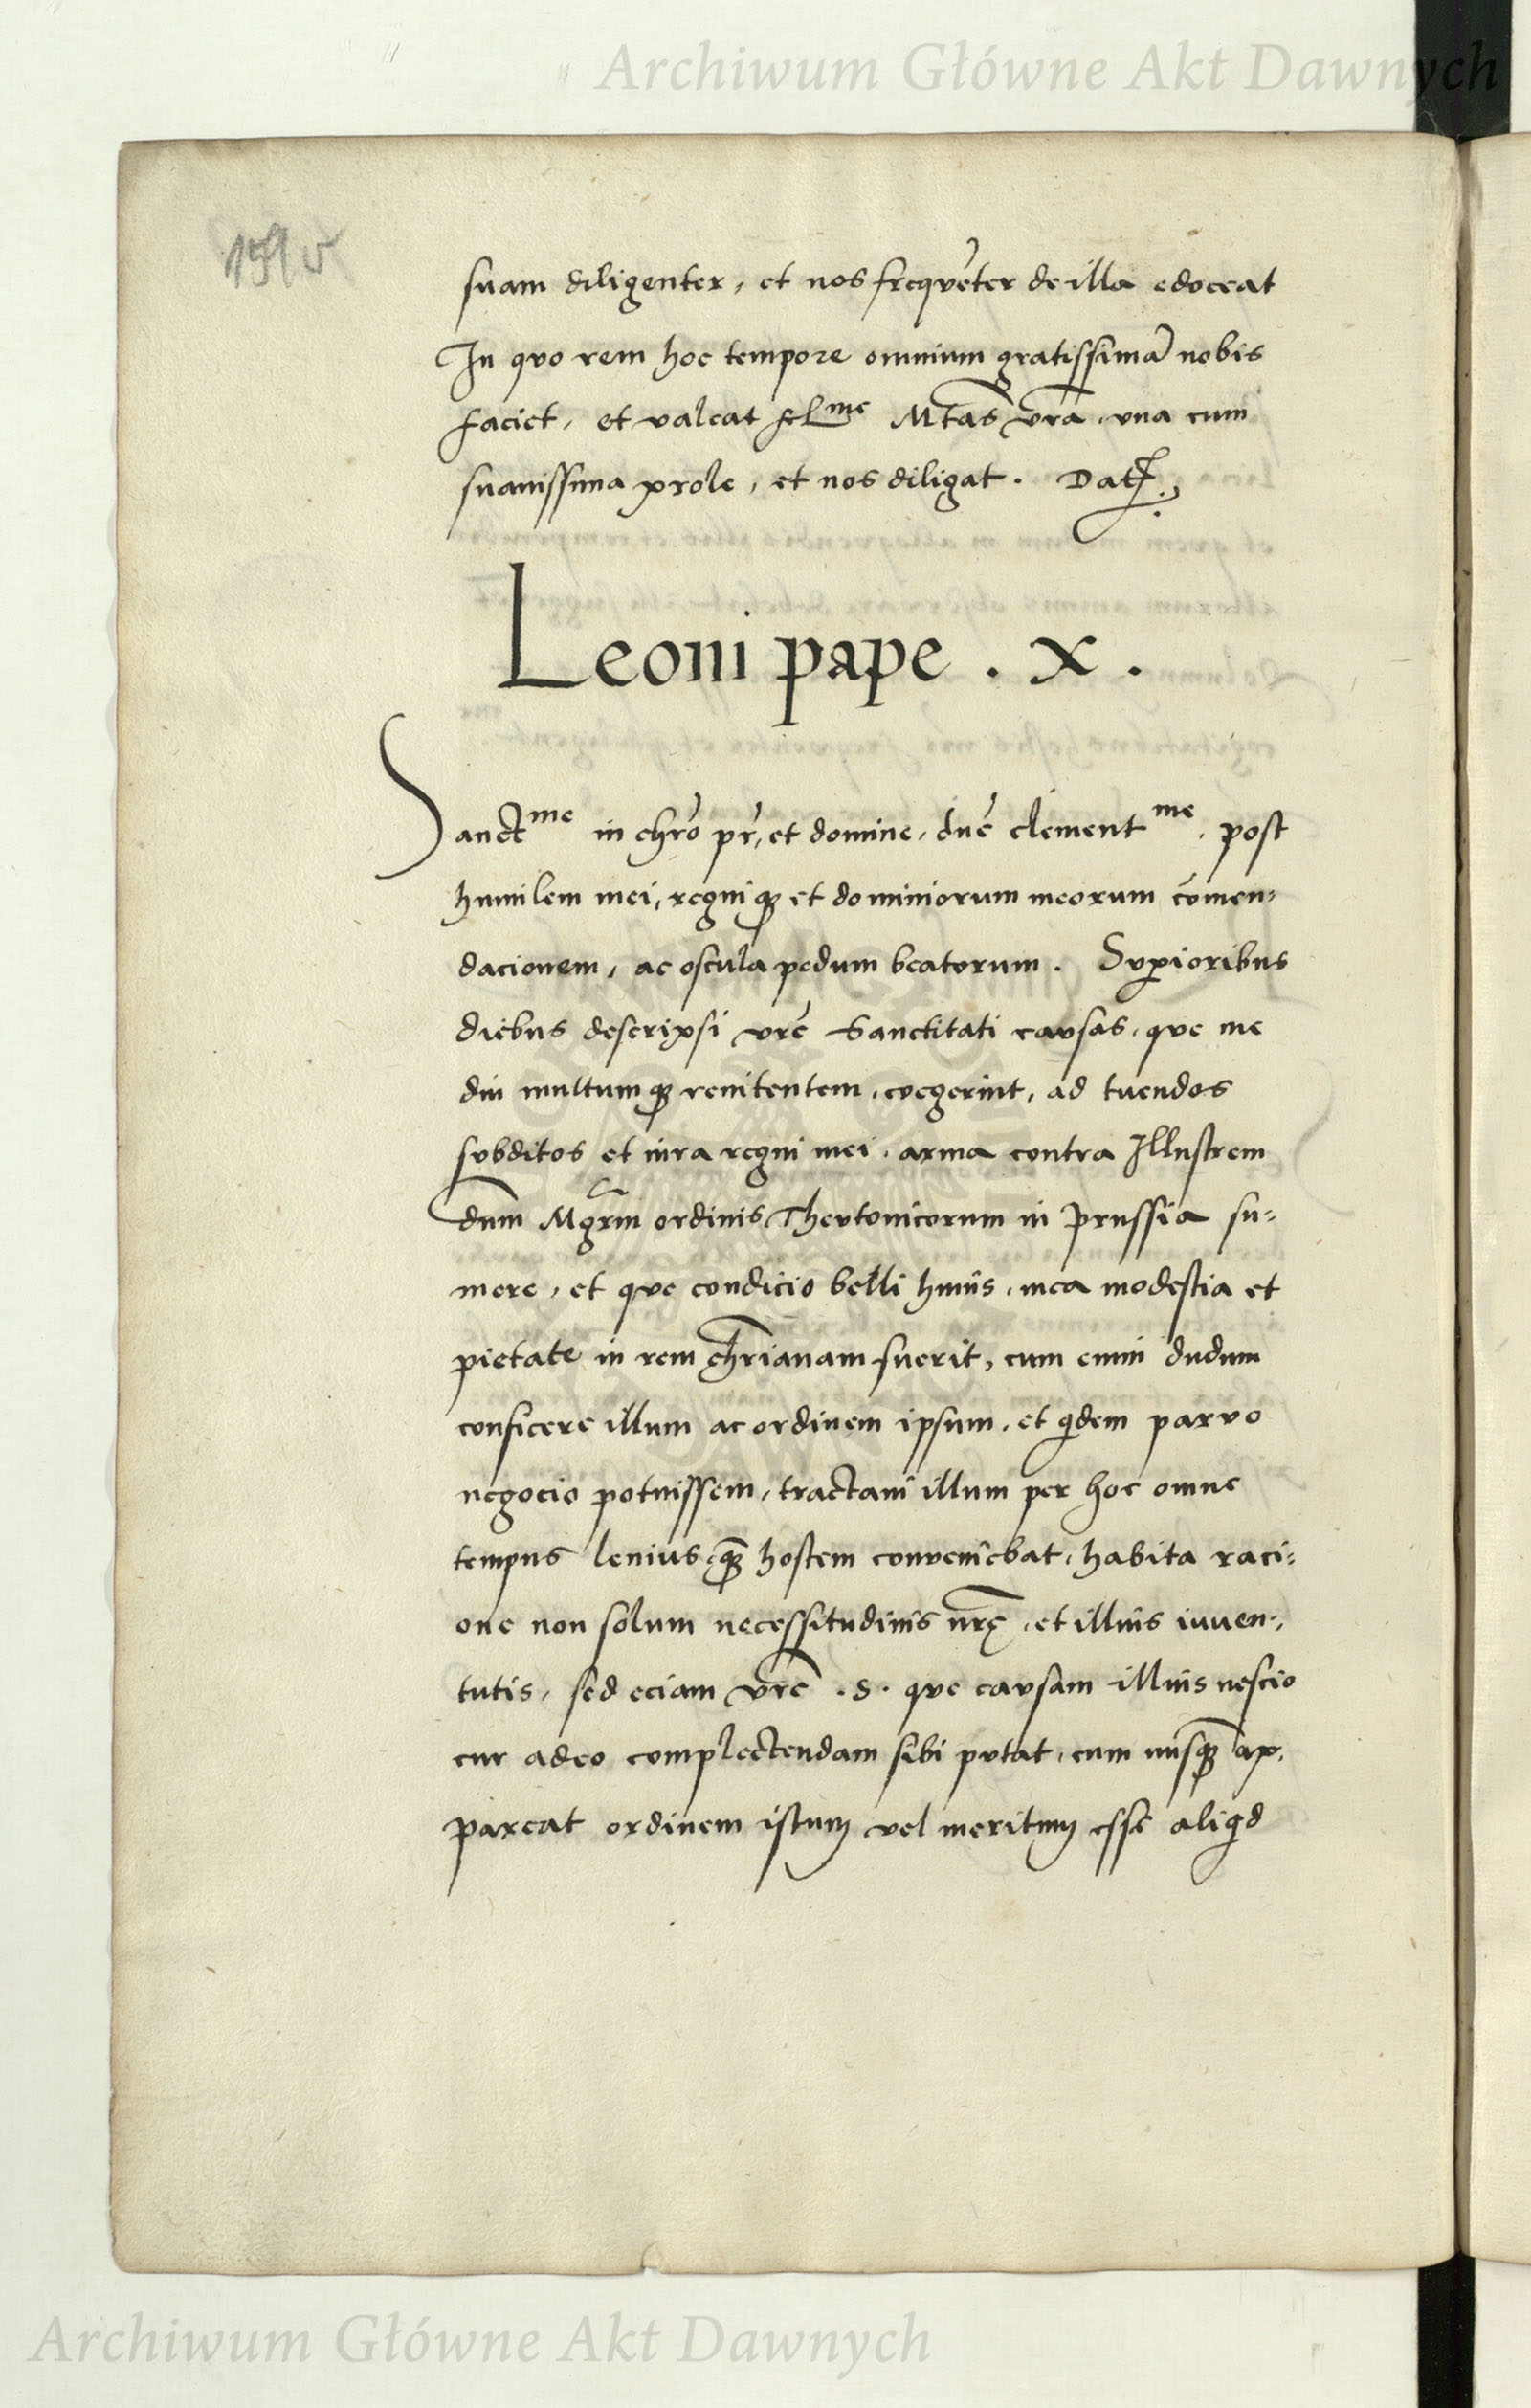 Archiwum Główne Akt Dawnych
suam diligenter, et nos frequēter de illa edoceat
In quo rem hoc tempore omnium gratissimā nobis
faciet, et valeat fel^me Mtas vra, vna cum
suauissima prole, et nos diligat. Dat
Leoni pape . X .
Sanct^me in chro pr, et domine, dne clement^me. post
humilem mei, regniq3 et dominiorum meorum cōmen=
dacionem, ac oscula pedum beatorum. Superioribus
diebus descripsi vre Sanctitati causas, que me
diu multumq3 renitentem, coegerint, ad tuendos
subditos et iura regni mei, arma contra Illustrem
dnm Mgrm ordinis Theutonicorum in Prussia su=
mere, et que condicio belli huius, mea modestia et
pietate in rem chrianam fuerit, cum enim dudum
conficere illum ac ordinem ipsum, et qidem paruo
negocio potuissem, tractaui illum per hoc omne
tempus lenius, q̄3 hostem conueniebat, habita raci=
one non solum necessitudinis nrę, et illius iuuen=
tutis, sed eciam vre .S. que causam illius nescio
cur adeo complectendam sibi putat, cum nusq̄3 ap=
pareat ordinem istum vel meritum esse aliqid
Archiwum Główne Akt Dawnych